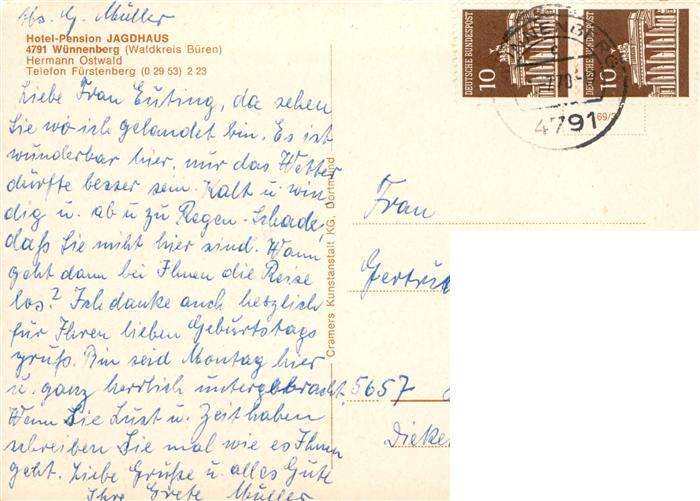 Abs. G. Müller
Hotel-Pension JAGDHAUS
4791 Wünnenberg (Waldkreis Büren)
Hermann Ostwald
Telefon Fürstenberg (0 29 53) 2 23
Liebe Frau Euting, da sehen
Sie wo ich gelandet bin. Es ist
wunderbar hier, nur das Wetter
dürfte besser sein. Kalt u. win
dig u. ab u zu Regen. Schade,
daß Sie nicht hier sind. Wann
geht dann bei Ihnen die Reise
los? Ich danke auch herzlich
für Ihren lieben Geburtstags
gruß. Bin seid Montag hier
u. ganz herrlich untergebracht.
Wenn Sie Lust u. Zeit haben
schreiben Sie mal wie es Ihnen
geht. Liebe Grüße u. alles Gute
Ihre Grete Müller
Cramers Kunstanstalt KG. Dortmund
DEUTSCHE BUNDESPOST
10
DEUTSCHE BUNDESPOST
10
4791
69/3
Frau
Gertrud
5657
Dieke